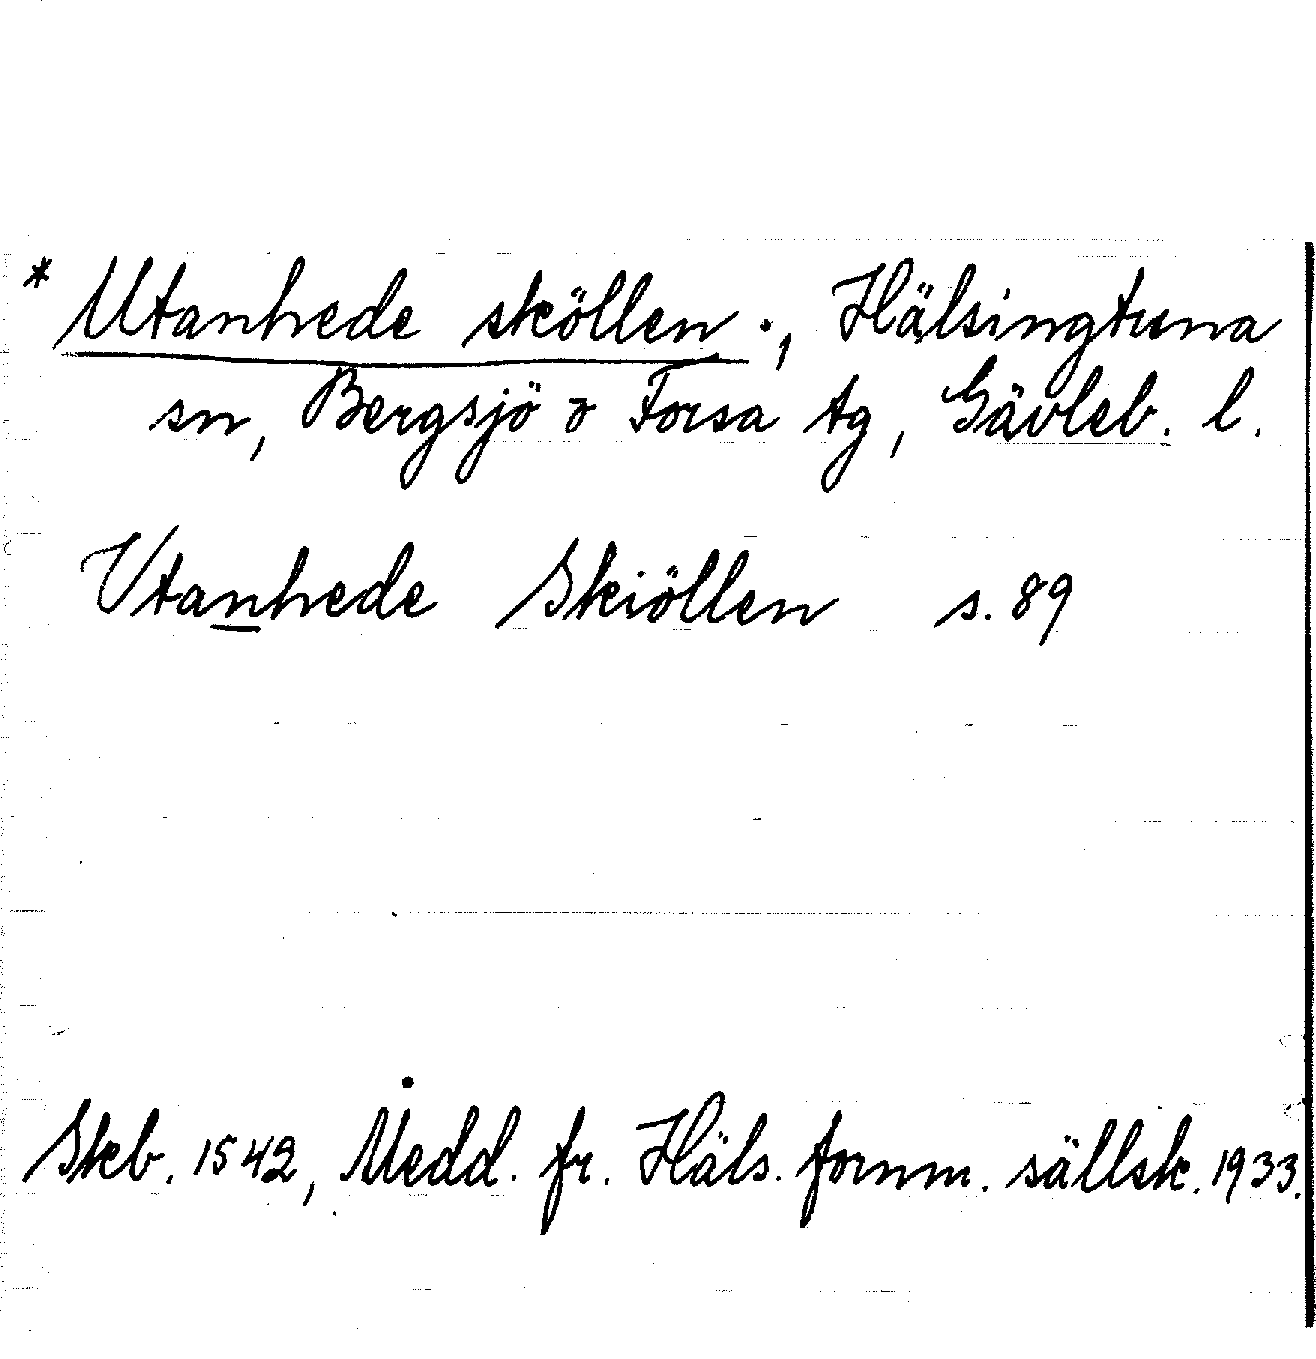 * Utanhede sköllen ., Hälsingtuna
sn, Bergsjö o Forsa tg, Gävleb. l.
Vtanhede Skiöllen s. 89
Skb. 1542, Medd. fr. Häls. fornm. sällsk. 1933.